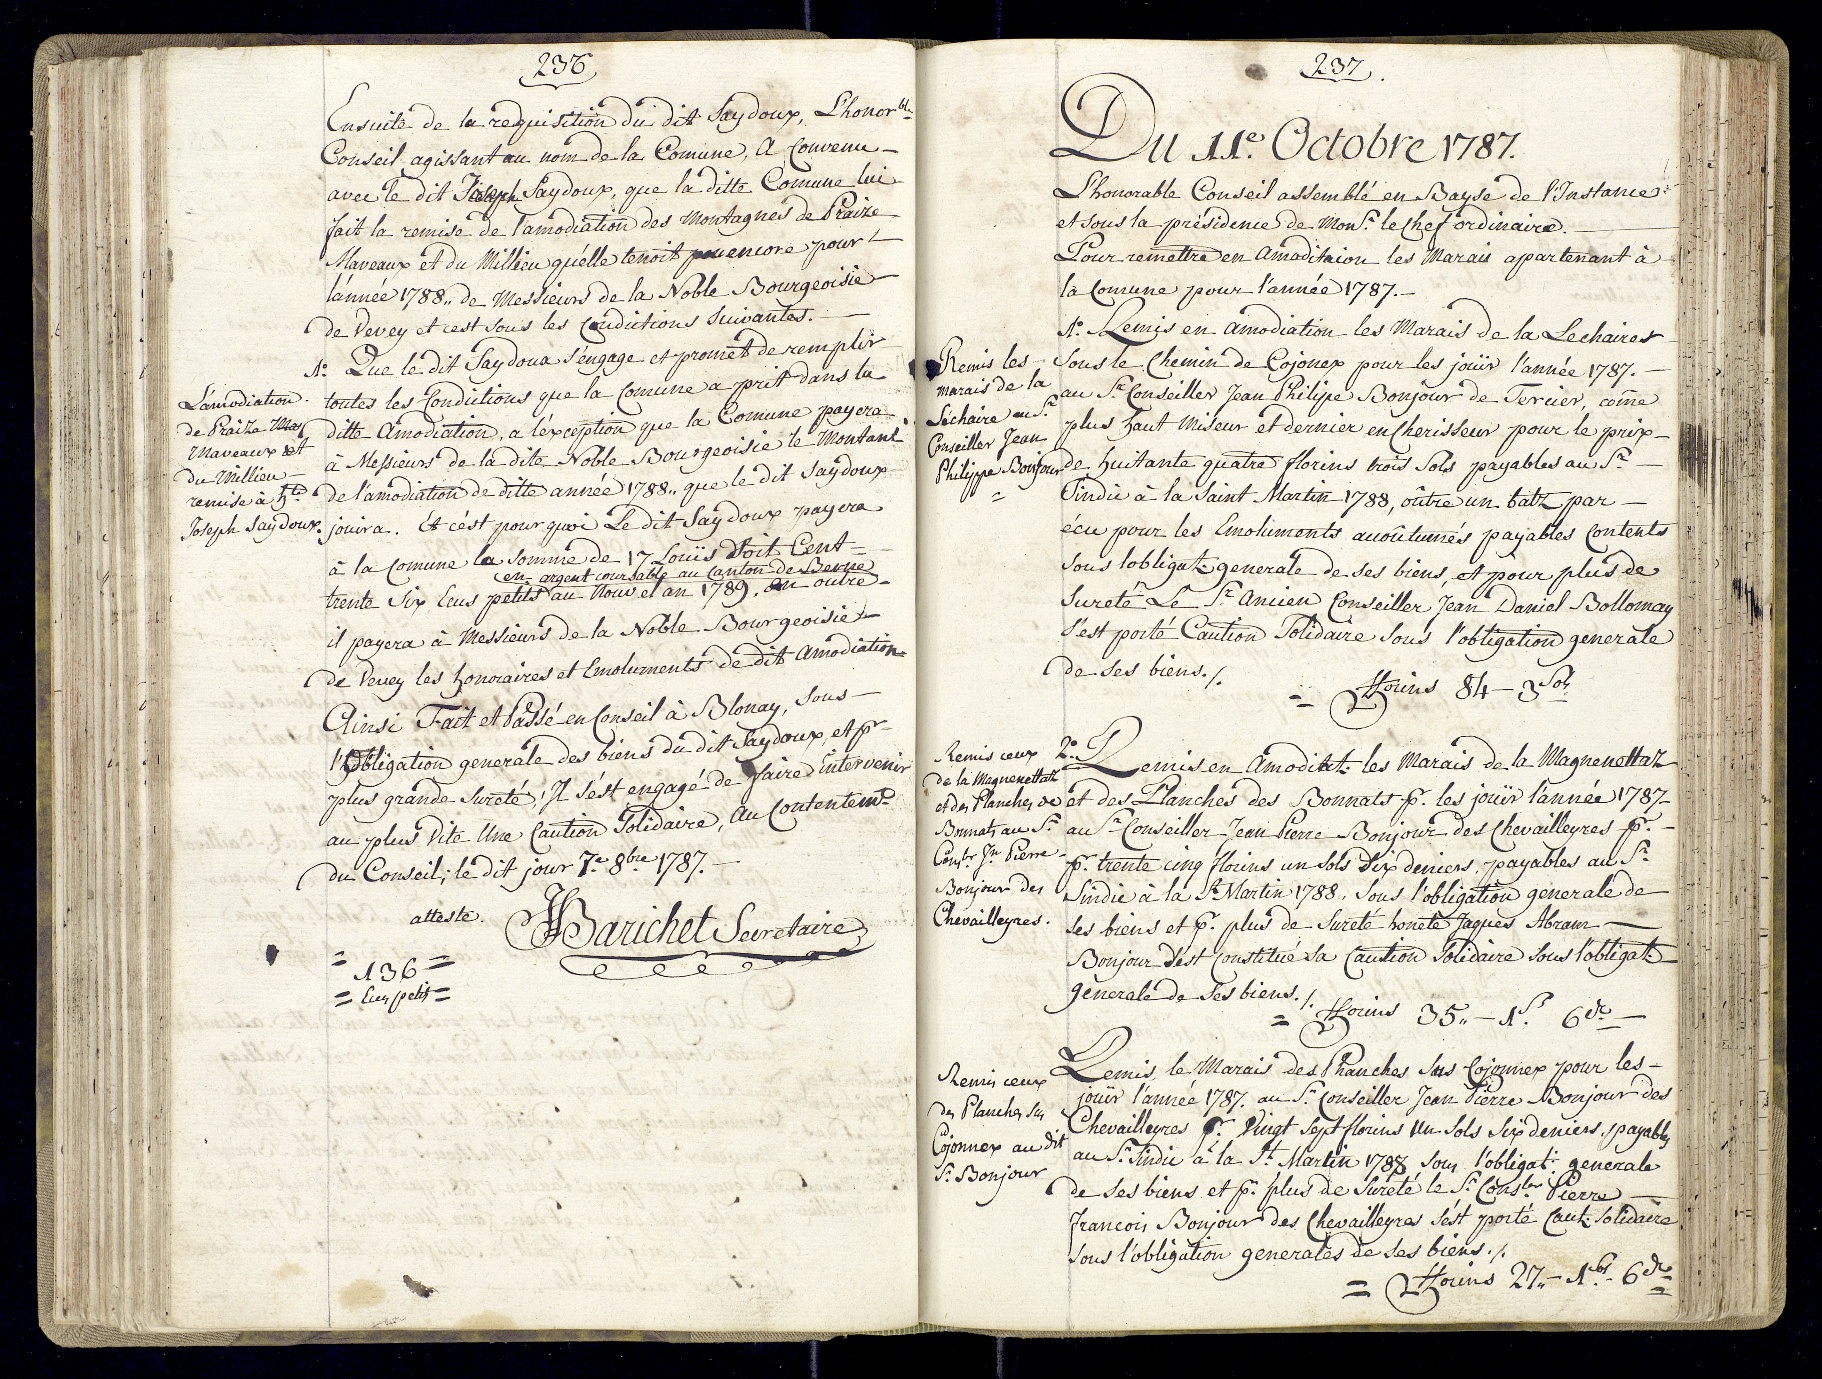 236
Ensuite de la requisition du dit Saydoux, L'honor.ble
Conseil agissant au nom de la Comune, A Convenu
avec le dit Joseph Saydoux, que la ditte Comune lui
fait la remise de l'amodiation des montagnes de Praize
Maveaux et du Millieu qu'élle tenoit encore pour
l'année 1788,, de Messieurs de la Noble Bourgeoisie
de Vevey et cest sous les Conditions Suivantes.
1°. Que le dit Saydoux s'engage et promet de remplir
toutes les Conditions que la Comune a prit dans la
ditte Amodiation, a léxception que la Comune payera
à Messieurs de la dite Noble Bourgeoisie le Montant
de l'amodiation de ditte année 1788,, que le dit Saydoux
jouira. Et c'ést pourquoi Le dit Saydoux payera
à la Comune la somme de 17 Louïs Soit Cent
en argent coursable au Canton de Berne
trente Six Ecus petits au Nouvel an 1789. en outre
il payera à Messieurs de la Noble Bourgeoisie
de Vevey les honoraires et Emoluments de dit Amodiation
Ainsi Fait et Passé en Conseil à Blonay, Sous
l'Obligation generale des biens du dit Saydoux, et pr
plus grande Sureté, Il s'ést engagé de faire intervenir
au plus Vite Une Caution Solidaire, Au Contentemt
du Conseil; le dit jour 7e 8bre 1787.
atteste. Barichet Secretaire
= 136 =
= Ecus petits =
L'amodiation
de Praize
Maveaux et
du Millieu
remise à
Joseph Saydoux.
237.
Du 11e. Octobre 1787.
L'honorable Conseil assemblé en Bayse de l'Instance
et sous la présidence de Monsr. le Chef ordinaire.
Pour remettre en Amoditaion les Marais apartenant à
la Comune pour l'année 1787.
1°. Remis en Amodiation les Marais de la Lechaires
Sous le Chemin de Cojonex pour les joüir l'année 1787.
au Sr. Conseiller Jean Philipe Bonjour de Tercier, come
plus haut Miseur et dernier encherisseur pour le prix
de huitante quatre florins trois Sols payables au Sr.
Sindic à la Saint Martin 1788, outre un batz par
écu pour les Emoluments acoûtumés payables Contents
Sous lobligat: generale de ses biens, et pour plus de
Sureté Le Sr. Ancien Conseiller Jean Daniel Bollomay
s'est porté Caution Solidaire Sous l'obligation generale
de ses biens./.
= florins 84 - 3 Sols
2°. Remis en Amodiat: les Marais de la Magnenettaz
et des Planches des Bonnats pr. les joüir l'année 1787
au Sr. Conseiller Jean Pierre Bonjour des Chevailleyres pr.
pr. trente cinq florins un Sols Six deniers, payables au Sr.
Sindic à la St. Martin 1788, Sous l'obligation generale de
ses biens et pr. plus de Sureté honete Jaques Abram
Bonjour s'ést Constitué sa Caution Solidaire Sous l'obligat:
generale de Ses biens./.
= florins 35,, - 1 S. 6 dr.
Remis le Marais des Planches Sus Cojonnex pour les
joüir l'année 1787. au Sr. Conseiller Jean Pierre Bonjour des
Chevailleyres pr. Vingt Sept florins Un Sols Six deniers, payables
au Sr. Sindic à la St. Martin 1788 Sous l'obligat: generale
de ses biens et pr. plus de Sureté le Sr. Consler Pierre
Francois Bonjour des Chevailleyres s'ést porté Caut: Solidaire
Sous l'obligation generales de ses biens./.
= florins 27,, - 1 Sol - 6 dr
Remis les
marais de la
Lechaire au Sr.
Conseiller Jean
Philippe Bonjour
=
Remis ceux
de la Magnenettaz
et des Planches de
Bonnats au Sr.
Consler. Jn Pierre
Bonjour des
Chevailleyres.
Remis ceux
des Planches Sus
Cojonnex au dit
Sr. Bonjour